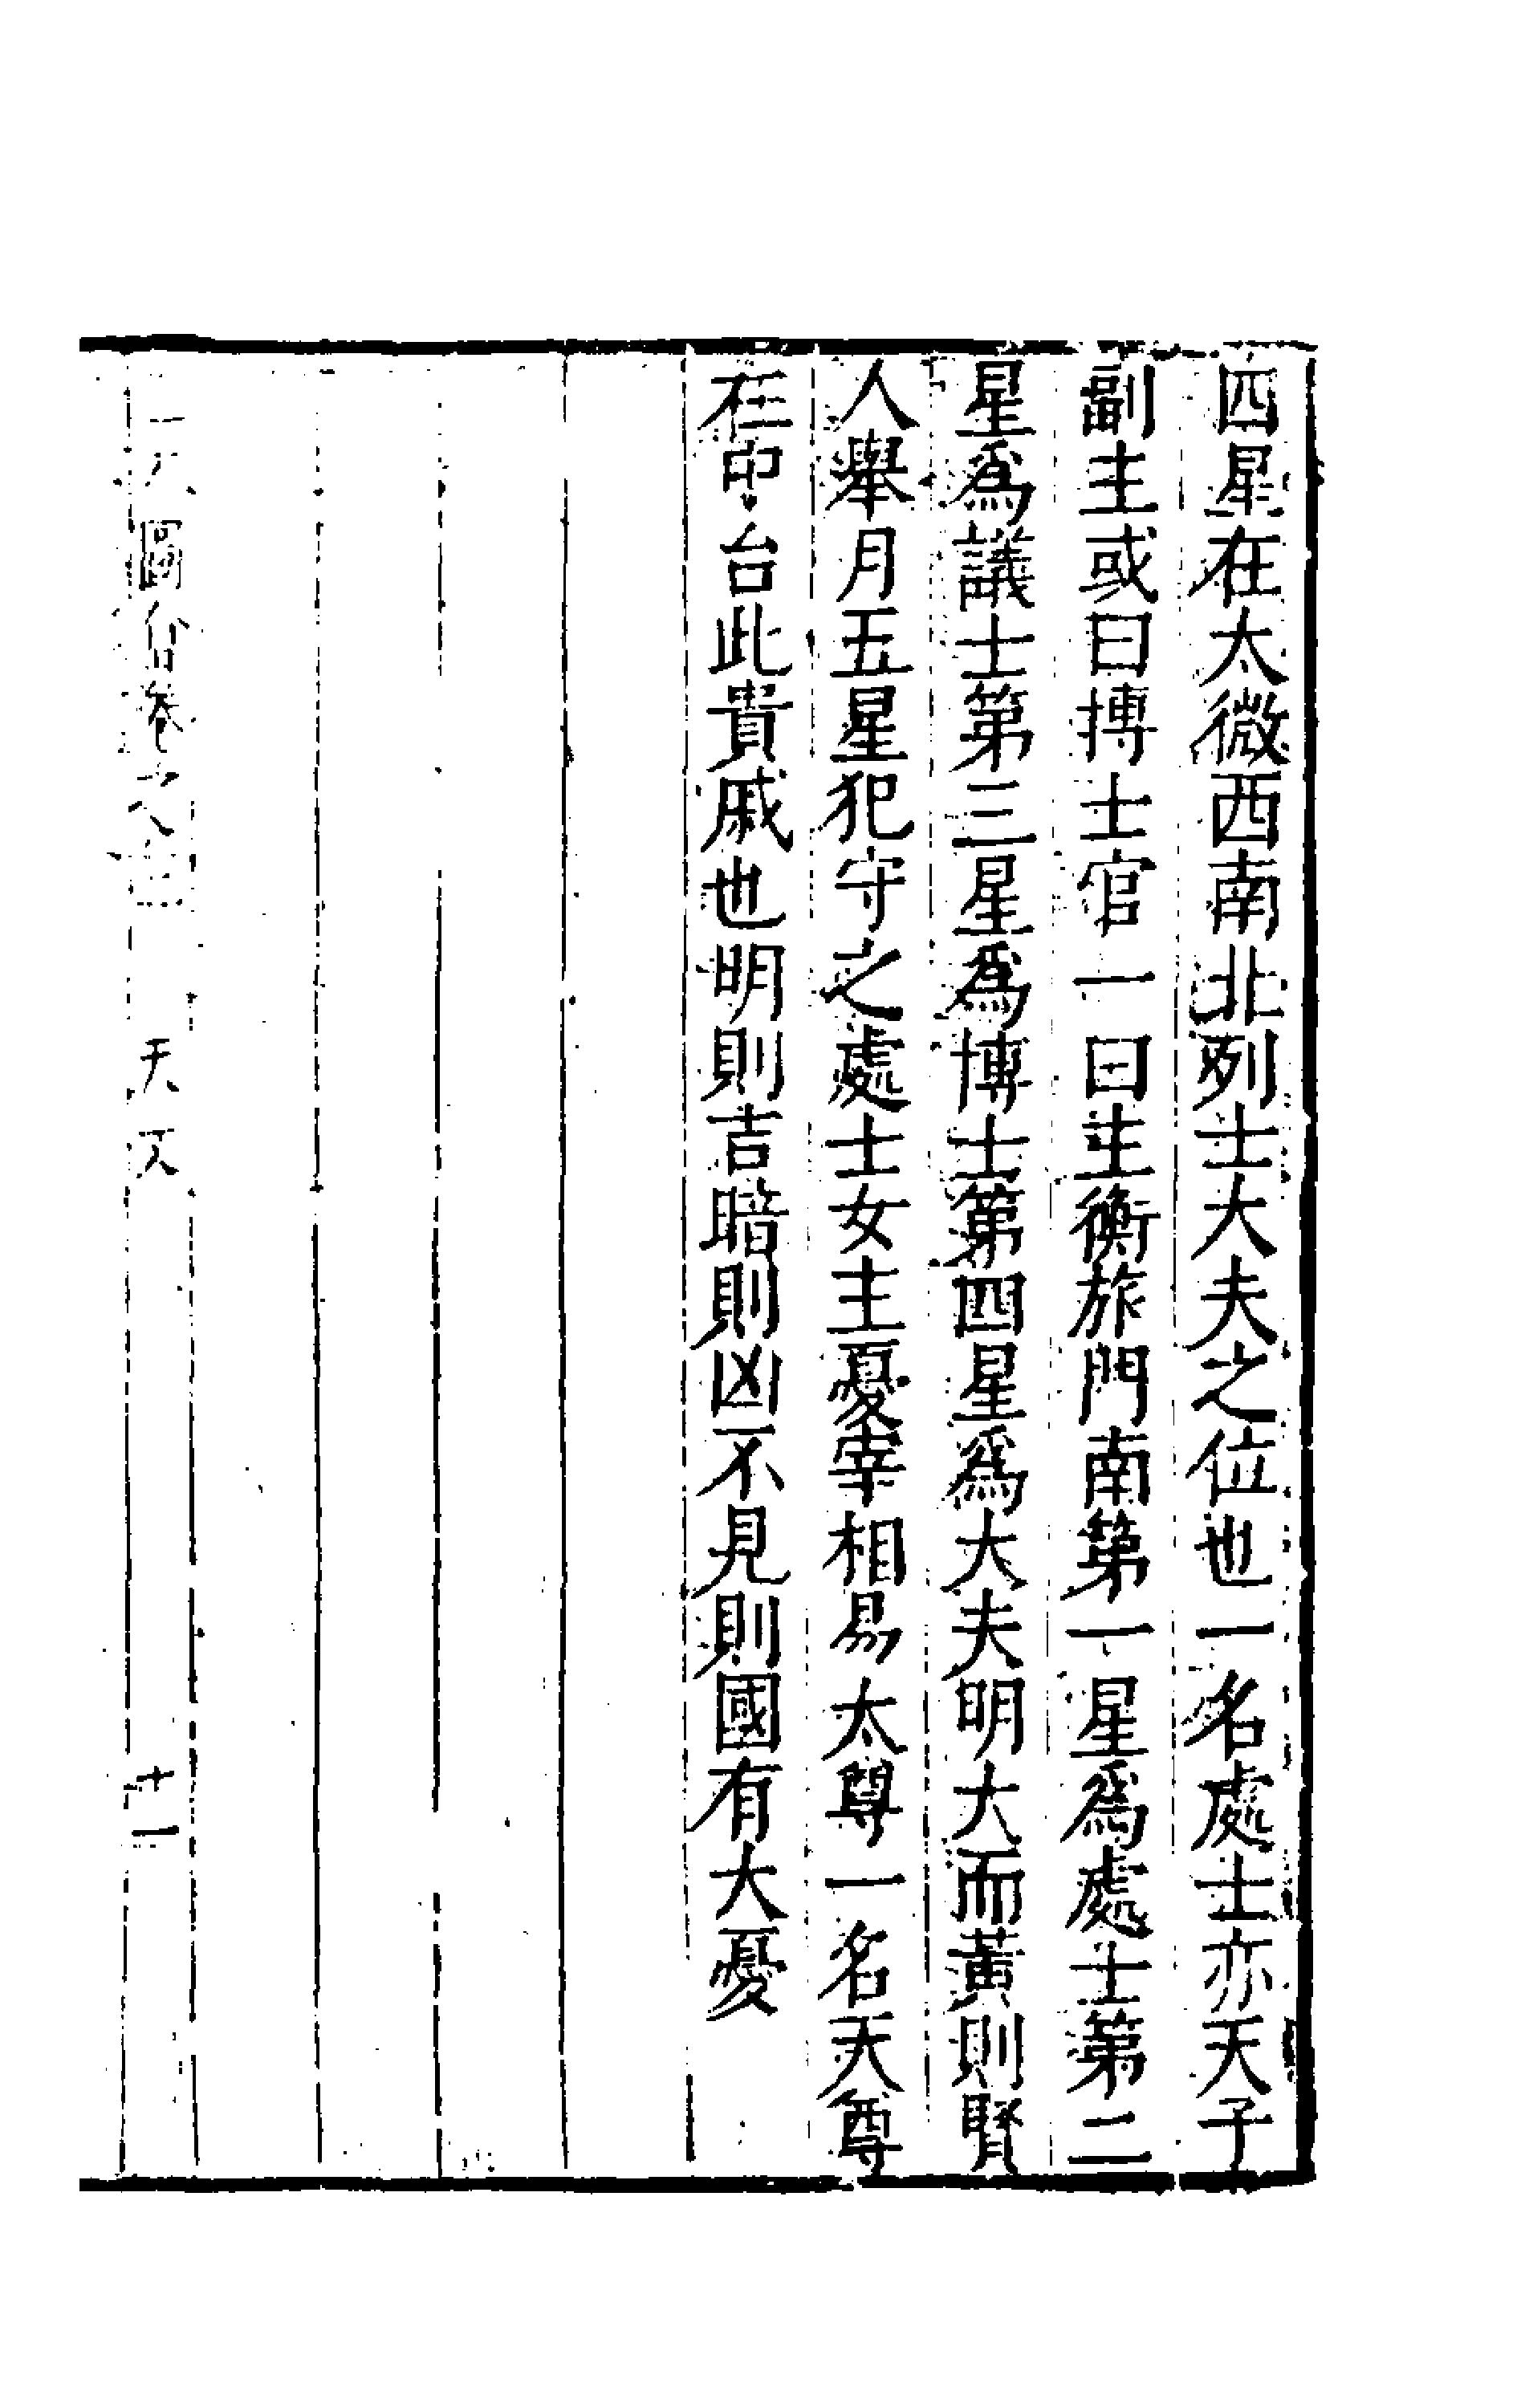 四星在太微西南北列士大夫之位也一名處士亦天子
副主或曰搏士官一曰主衡旅門南第一星爲處士第二
星爲議士第三星爲博士第四星爲大夫明大而黃則賢
人舉月五星犯守之處士女主憂宰相易太尊一名天尊
在中台此貴戚也明則吉暗則凶不見則國有大憂
圖會卷 天文 十一